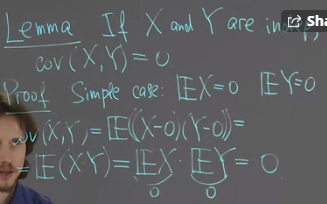 Lemma If X and Y are
cov(X,Y)=0
Proof Simple case: 𝔼X=0 𝔼Y=0
cov(X,Y)=𝔼((X-0)(Y-0))=
=𝔼(X·Y)=𝔼X·𝔼Y=0
0 0